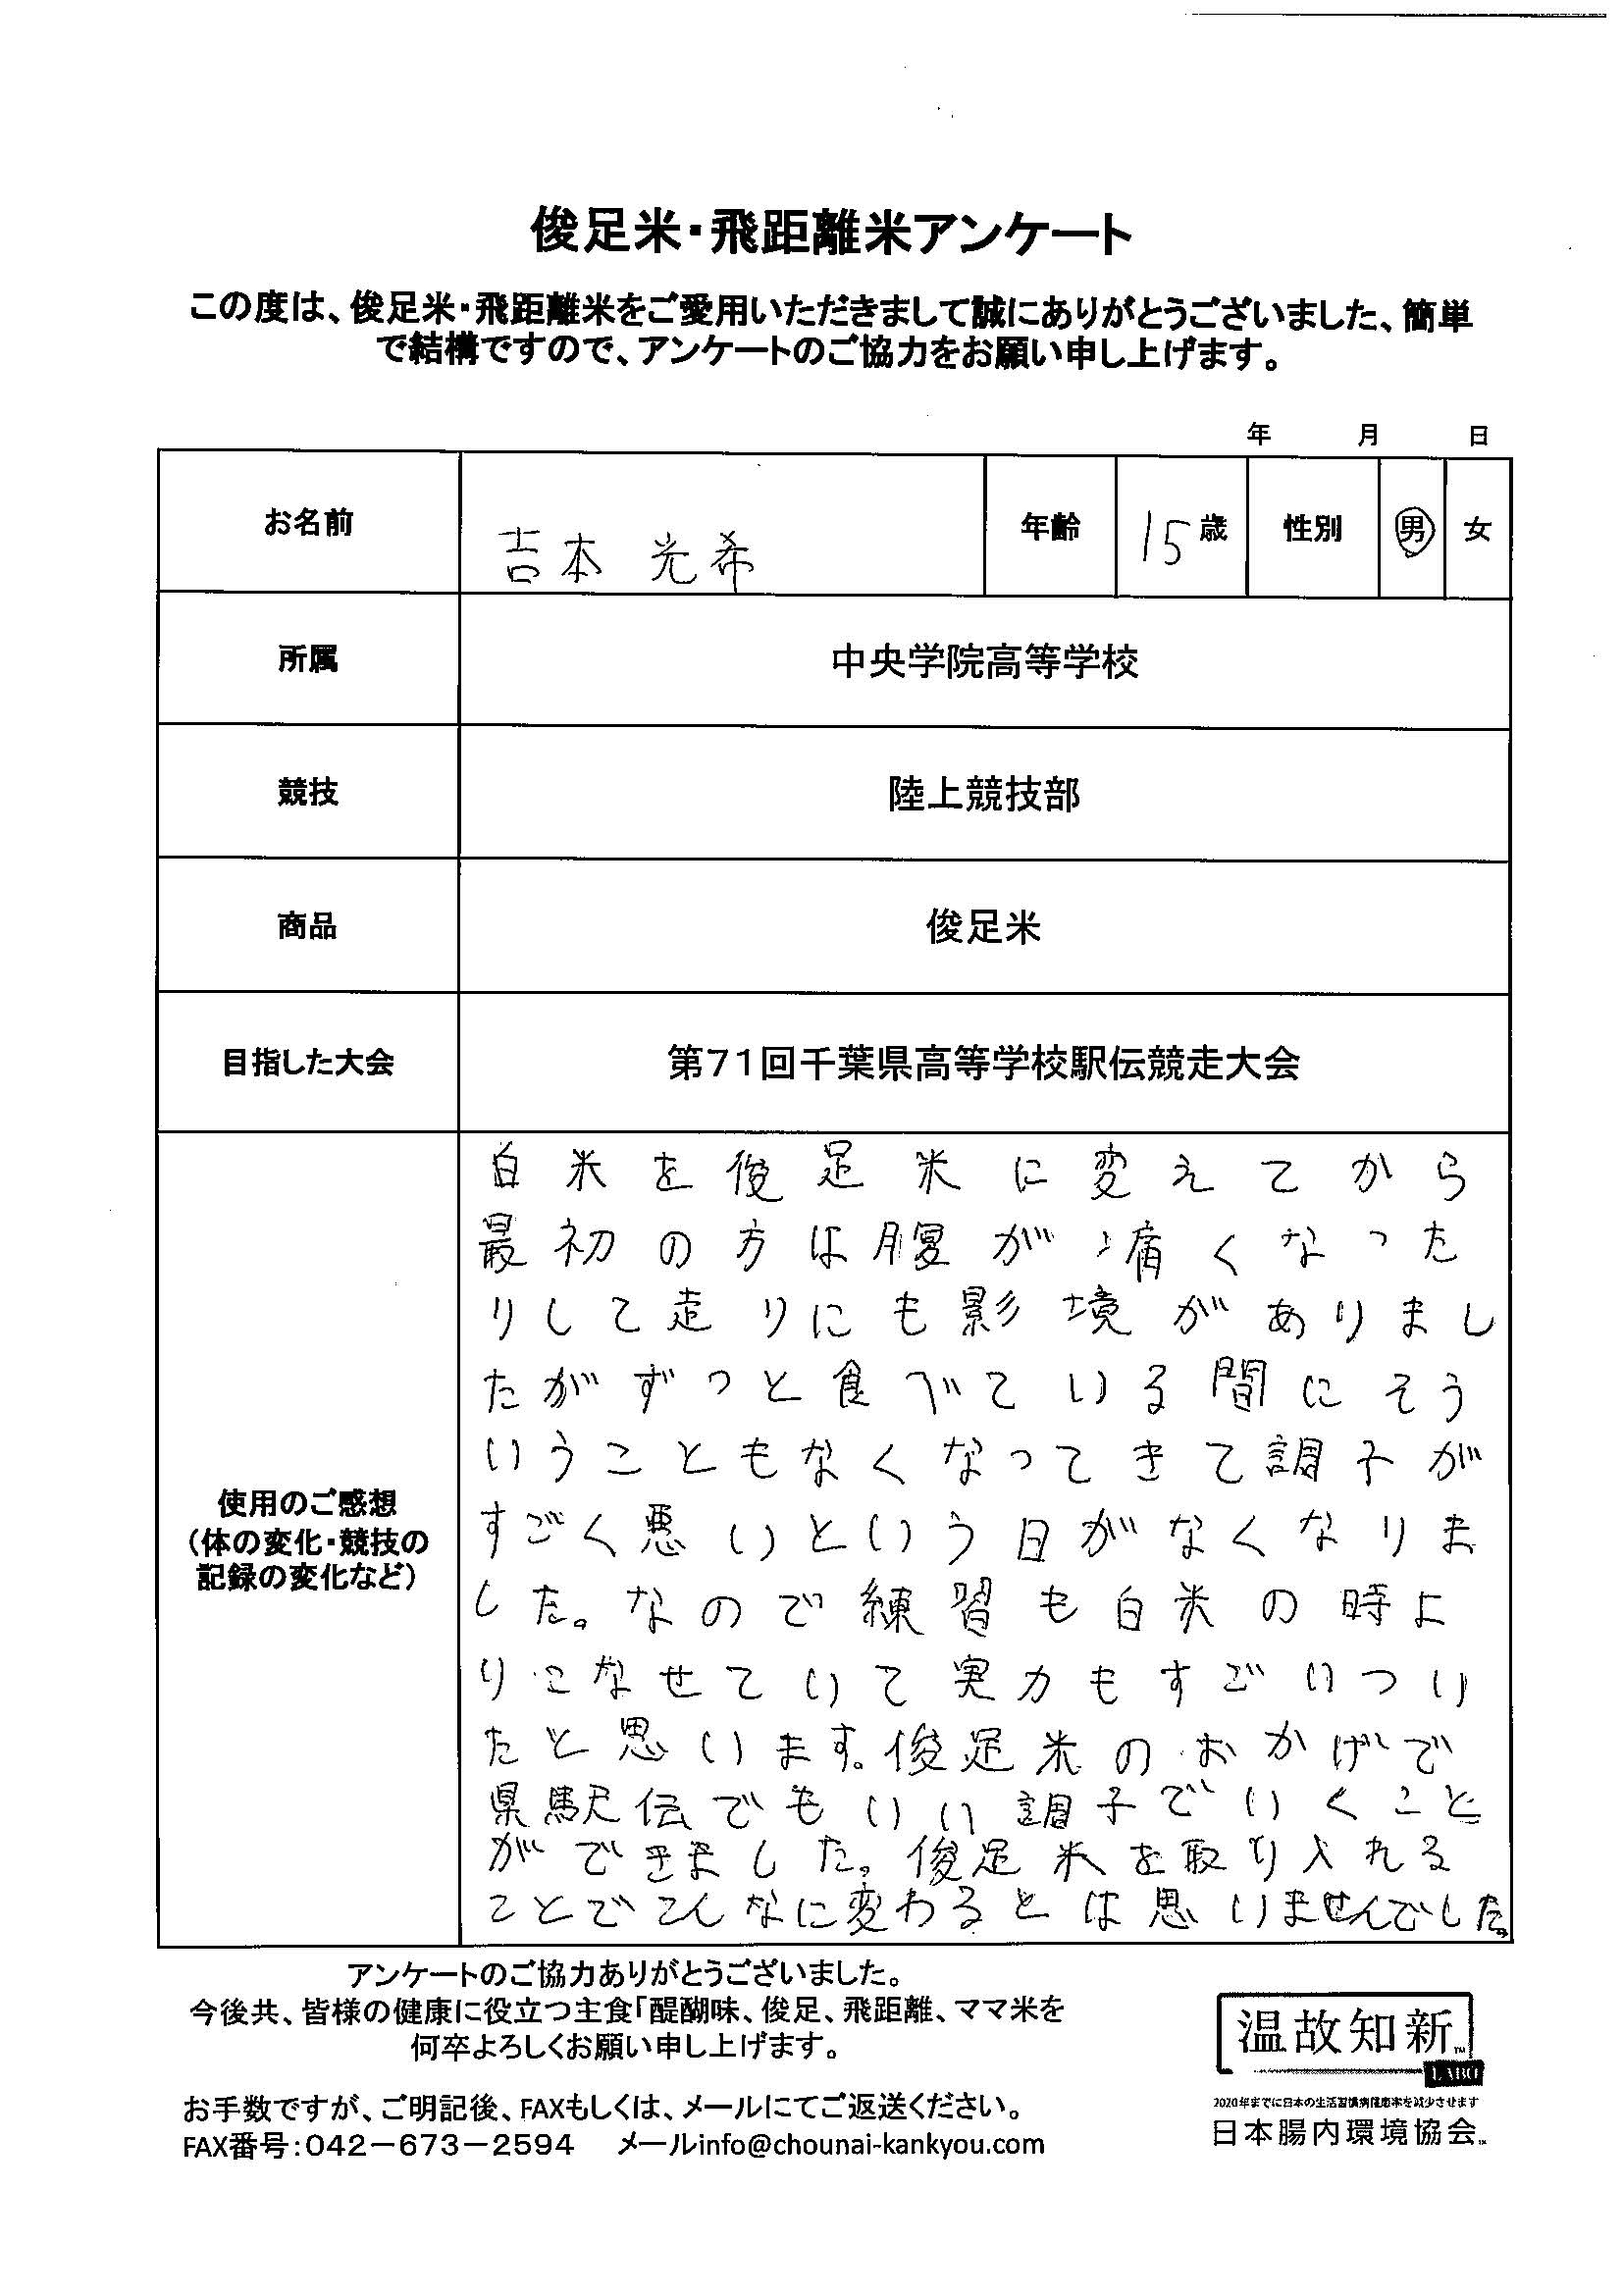 俊足米・飛距離米アンケート
この度は、俊足米・飛距離米をご愛用いただきまして誠にありがとうございました、簡単
で結構ですので、アンケートのご協力をお願い申し上げます。
年 月 日
お名前 吉本 光希 年齢 15歳 性別 男 女
所属 中央学院高等学校
競技 陸上競技部
商品 俊足米
目指した大会 第71回千葉県高等学校駅伝競走大会
使用のご感想
(体の変化・競技の
記録の変化など)
白米を俊足米に変えてから
最初の方は腹が痛くなった
りして走りにも影境がありまし
たがずっと食べている間にそう
いうこともなくなってきて調子が
すごく悪いという日がなくなりま
した。なので練習も白米の時よ
りこなせていて実力もすごいつい
たと思います。俊足米のおかげで
県駅伝でもいい調子でいくこと
ができました。俊足米を取り入れる
ことでこんなに変わるとは思いませんでした。
アンケートのご協力ありがとうございました。
今後共、皆様の健康に役立つ主食「醍醐味、俊足、飛距離、ママ米を
何卒よろしくお願い申し上げます。
お手数ですが、ご明記後、FAXもしくは、メールにてご返送ください。
FAX番号:042-673-2594 メールinfo@chounai-kankyou.com
温故知新™
LABO
2020年までに日本の生活習慣病罹患率を減少させます
日本腸内環境協会